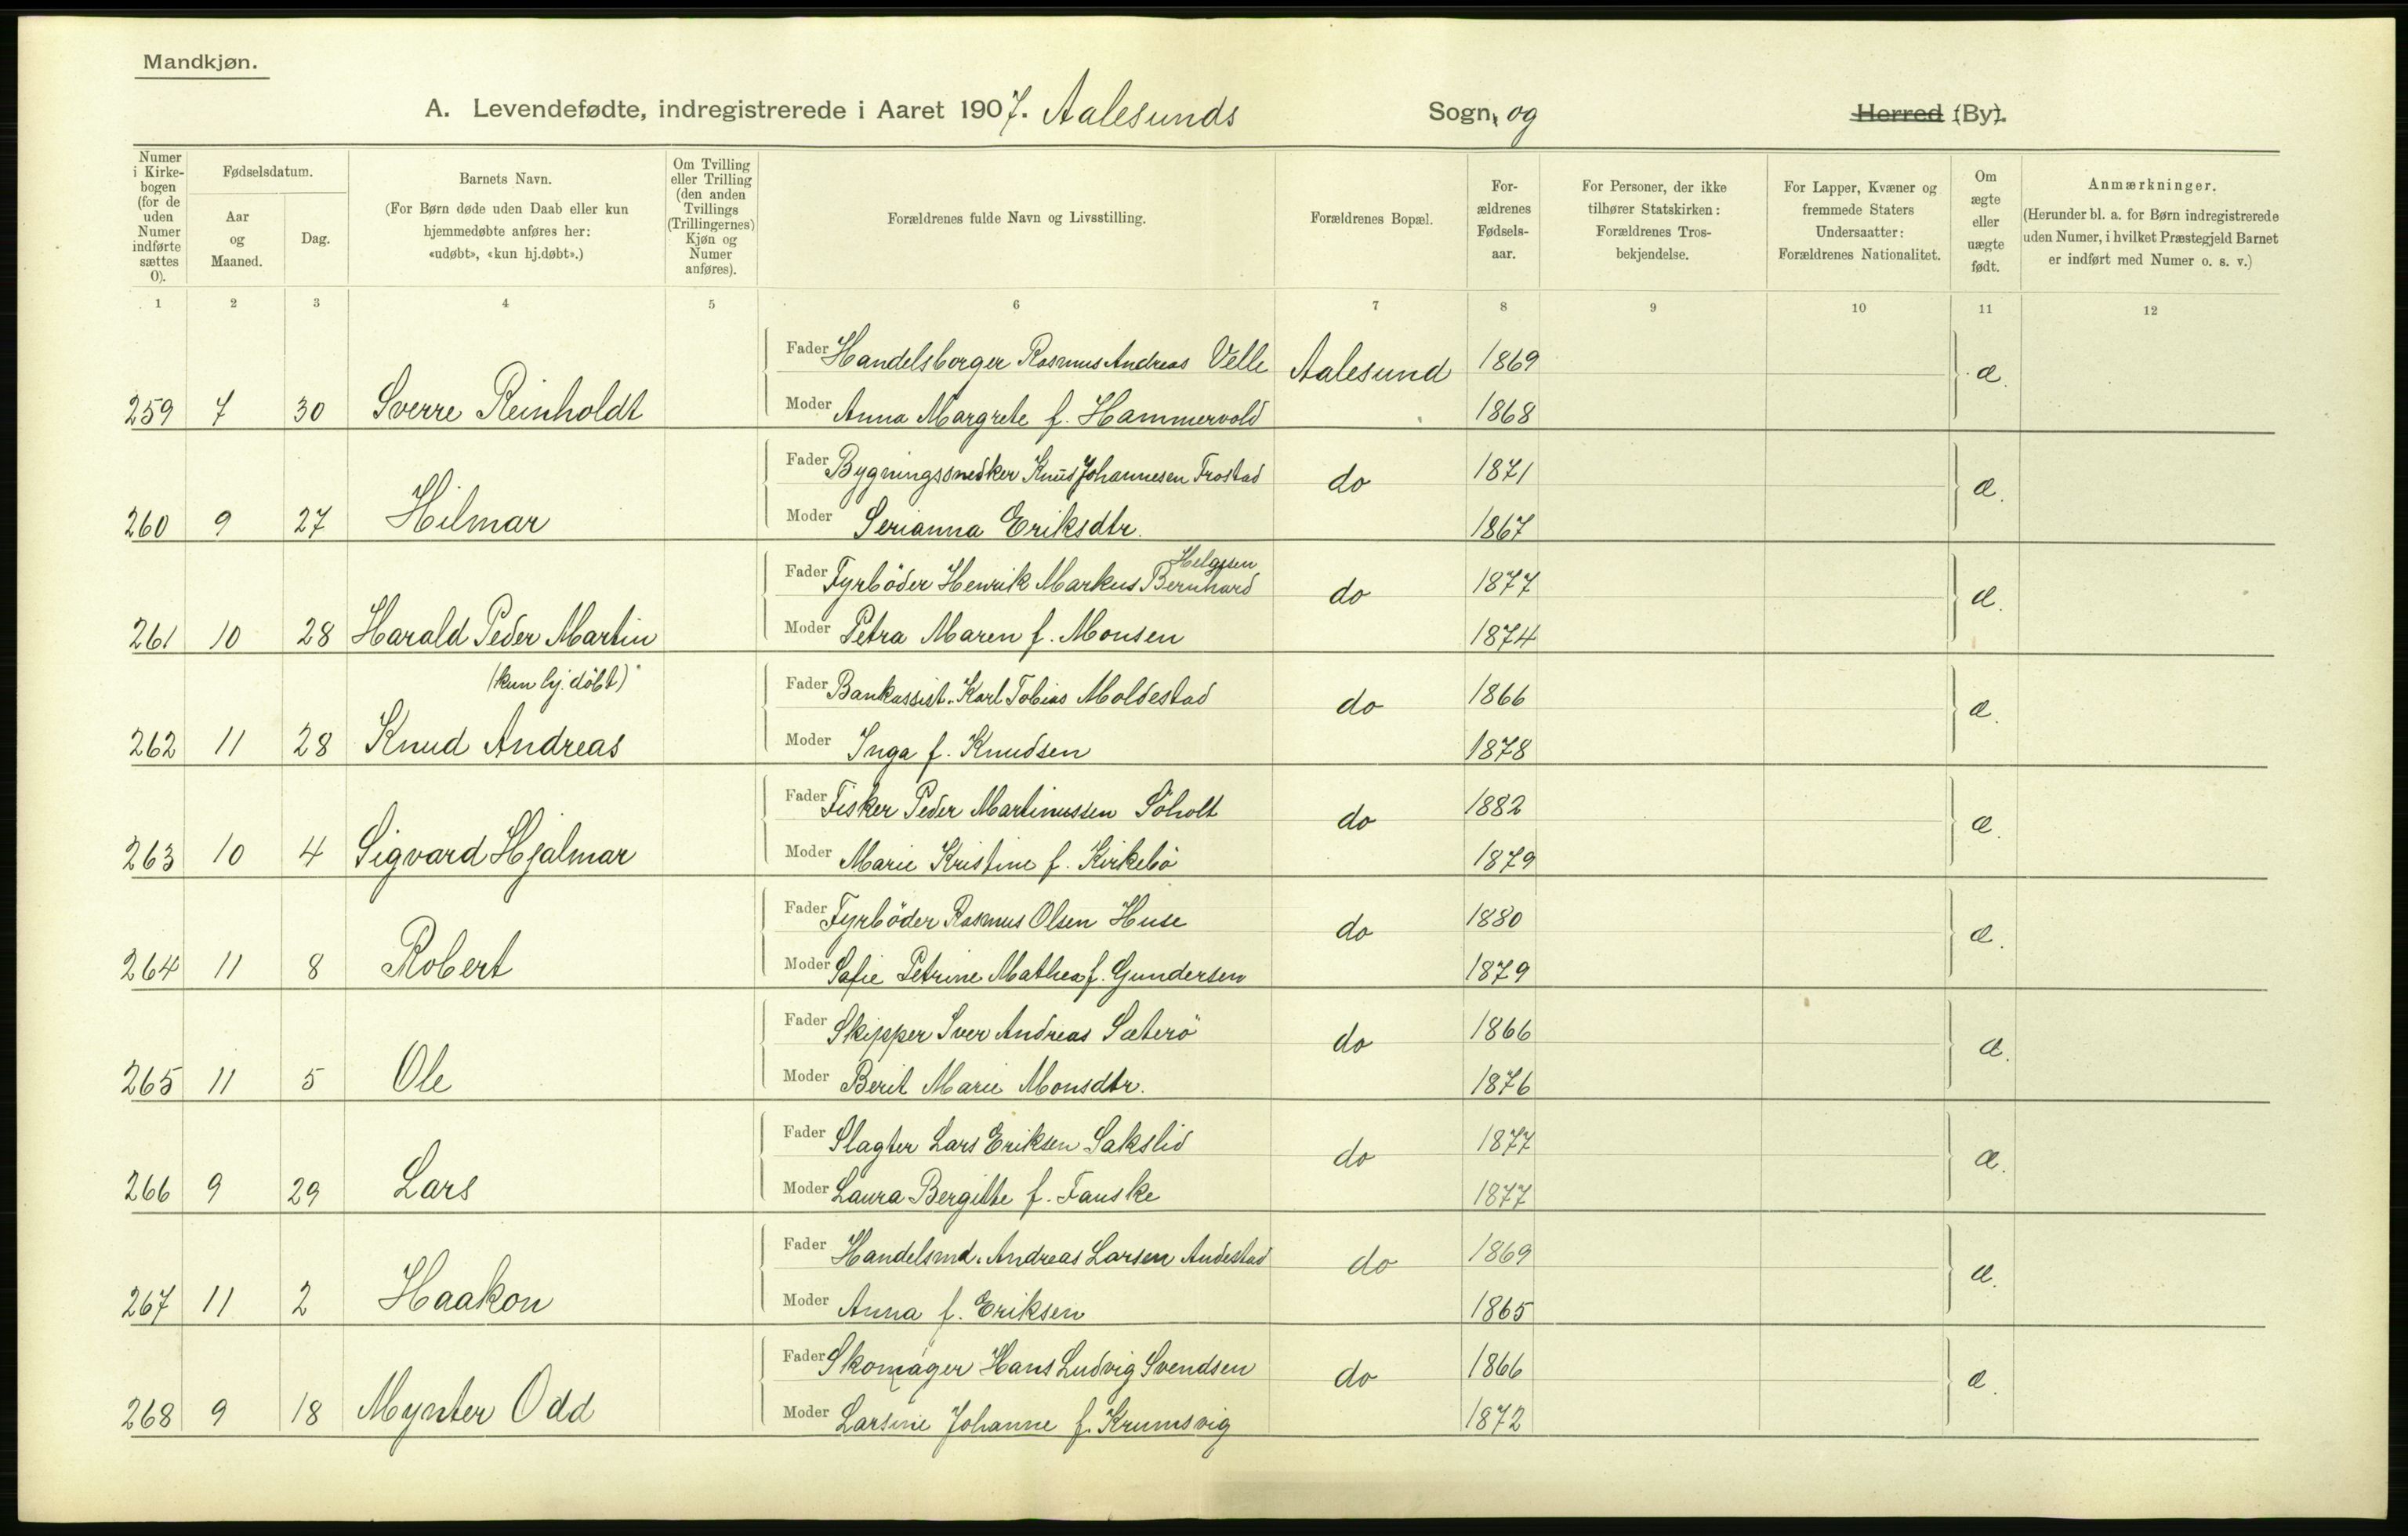 Mandkjøn.
A. Levendefødte, indregistrerede i Aaret 1907. Aalesunds Sogn, og Herred (By).
Numer i Kirkebogen (for de uden Numer indførte sættes 0).
Fødselsdatum.
Aar og Maaned.
Dag.
Barnets Navn.
(For Børn døde uden Daab eller kun hjemmedøbte anføres her: «udøbt», «kun hj.døbt».)
Om Tvilling eller Trilling (den anden Tvillings (Trillingernes) Kjøn og Numer anføres).
Forældrenes fulde Navn og Livsstilling.
Forældrenes Bopæl.
Forældrenes Fødselsaar.
For Personer, der ikke tilhører Statskirken: Forældrenes Trosbekjendelse.
For Lapper, Kvæner og fremmede Staters Undersaatter: Forældrenes Nationalitet.
Om ægte eller uægte født.
Anmærkninger.
(Herunder bl. a. for Børn indregistrerede uden Numer, i hvilket Præstegjeld Barnet er indført med Numer o. s. v.)
1 2 3 4 5 6 7 8 9 10 11 12
Fader Handelsborger Rasmus Andreas Velle Aalesund 1869 æ.
259 7 30 Sverre Reinholdt Moder Anna Margrete f. Hammervold 1868
Fader Bygningssnedker Knud Johannesen Frostad do 1871 æ.
260 9 27 Hilmar Moder Serianna Eriksdtr. 1867
Helgesen
Fader Fyrböder Henrik Markus Bernhard do 1877 æ.
261 10 28 Harald Peder Martin Moder Petra Maren f. Monsen 1874
(kun hj. döbt)
Fader Bankassist. Karl Tobias Moldestad do 1866 æ.
262 11 28 Knud Andreas Moder Inga f. Knudsen 1878
Fader Fisker Peder Martinussen Söholt do 1882 æ.
263 10 4 Sigvard Hjalmar Moder Marie Kristine f. Kirkebö 1879
Fader Fyrböder Rasmus Olsen Huse do 1880 æ.
264 11 8 Robert Moder Sofie Petrine Mathea f. Gundersen 1879
Fader Skipper Iver Andreas Sæterö do 1866 æ.
265 11 5 Ole Moder Berit Marie Monsdtr. 1876
Fader Slagter Lars Eriksen Sakslid do 1877 æ.
266 9 29 Lars Moder Laura Bergitte f. Fauske 1877
Fader Handelsmd. Andreas Larsen Andestad do 1869 æ.
267 11 2 Haakon Moder Anna f. Eriksen 1865
Fader Skomager Hans Ludvig Svendsen do 1866 æ.
268 9 18 Mynter Odd Moder Larsine Johanne f. Krumsvig 1872